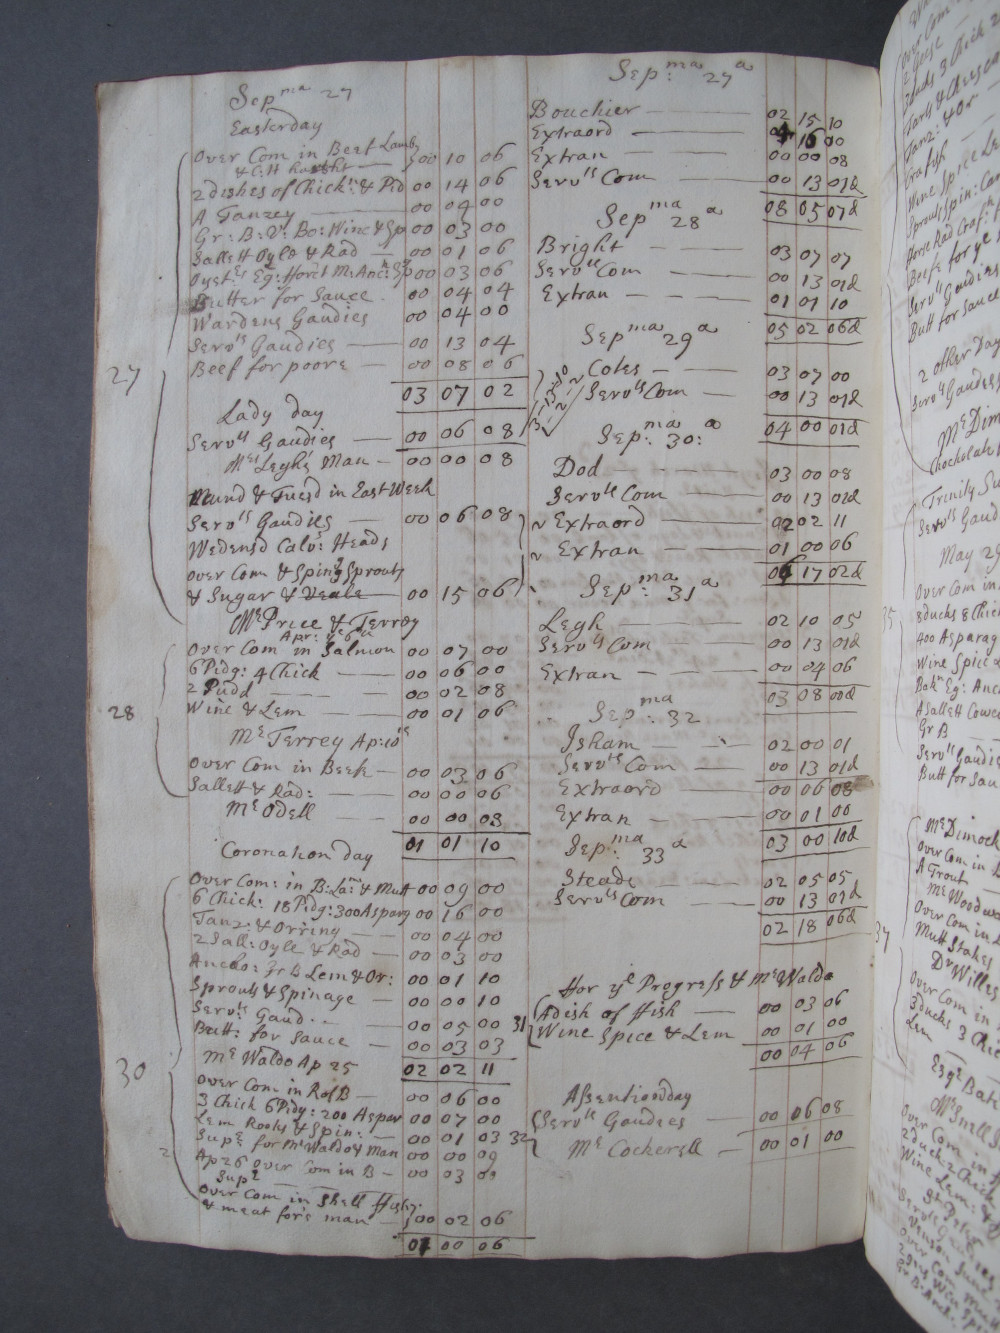 Sepma 27
Easterday
Over Com in Beef Lamb
& C: H 00 10 06
2 dishes of Chick: & Pid 00 14 06
A Tanzey 00 04 00
Gr: B: V: Bo: Wine & Sp 00 03 00
Sallett Oyle & Rad 00 01 06
Oysters Eg: Anc: 00 03 06
Butter for Sauce 00 04 04
Wardens Gaudies 00 04 00
Servts Gaudies 00 13 04
Beef for poore 00 08 06
27
03 07 02
Lady day
Servts Gaudies 00 06 08
Mr Legh's Man 00 00 08
Mund & Tuesd in East Week
Servts Gaudies 00 06 08
Wedensd Calvs Heads
over Com & Sping Sprouts
& Sugar & Veale 00 15 06
Mr Price & Terrey
Apr: ye 6th
Over Com in Salmon 00 07 00
6 Pidg: 4 Chick 00 06 00
2 Pudd 00 02 08
Wine & Lem 00 01 06
28
Mr Terrey Ap: 10th
Over Com in Beefe 00 03 06
Sallett & Rad: 00 00 06
Mr Odell 00 00 08
01 01 10
Coronation day
Over Com: in B: Lam & Mutt 00 09 00
6 Chick: 18 Pidg: 300 Asparg 00 16 00
Tanz: & Orring 00 04 00
2 Sall: Oyle & Rad 00 03 00
Ancho: Gr B Lem & Or: 00 01 10
Sprouts & Spinage 00 00 10
Servts Gaud 00 05 00
Butt: for Sauce 00 03 03
30
Mr Waldo Ap 25 02 02 11
Over Com in Rost B 00 06 00
3 Chick 6 Pidg: 200 Aspar 00 07 00
Lem Roots & Spin: 00 01 03
Supr for Mr Waldo's man 00 00 09
Ap 26 over Com in B 00 03 00
2
Supr
Over Com in Shell Fish
& meat for's man 00 02 06
01 00 06
Sep:ma 27a
Bouchier 02 15 10
Extraord 4 16 00
Extran 00 00 08
Servts Com 00 13 01d
08 05 07d
Sepma 28a
Bright 03 07 07
Servts Com 00 13 01d
Extran 01 01 10
05 02 06d
Sepma 29a
Coles 03 07 00
Servts Com 00 13 01d
04 00 01d
Sep: 30:
Dod 03 00 08
Servts Com 00 13 01d
2 Extraord 02 02 11
2 Extran 01 00 06
06 17 02d
Sep:ma 31a
Legh 02 10 05
Servts Com 00 13 01d
Extran 00 04 06
03 08 00d
Sep:ma 32
Isham 02 00 01
Servts Com 00 13 01d
Extraord 00 06 08
Extran 00 01 00
03 00 10d
Sep:ma 33a
Steade 02 05 05
Servts Com 00 13 01d
02 18 06d
For ye Progress & Mr Waldo
31
A dish of ffish 00 03 06
Wine Spice & Lem 00 01 00
00 04 06
Assentionday
32
Servts Gaudies 00 06 08
Mr Cockerell 00 01 00
Over Com
2 Geese
Ducks 3 Chick
Tarts & Cheesca
Tanz: & Or
Crafish
Wine Spice Le
Beefe for ye
Servts Gaudies
Butt for Sauce
2 other Day
Servts Gaudies
Mr Dim
Chocolate
Trinity Su
Servts Gaud
May 29
35
Over Com in
8 ducks 8 Chic
400 Asparag
Wine Spice
A Sallett Cowc
Gr B
Servts Gaudie
Butt for Sau
Mr Dimock
Over Com in
A Trout
Mr Woodwa
37
Over Com in
Mutt Stakes
Dr Willes
Over Com in
3 ducks 3 Chic
Lem
Esqr Bate
Mr Smell
Over Com in
2 duck 2 Chick
Wine Lem:
Servts Gaudies
Venson June
Over Com Mutt